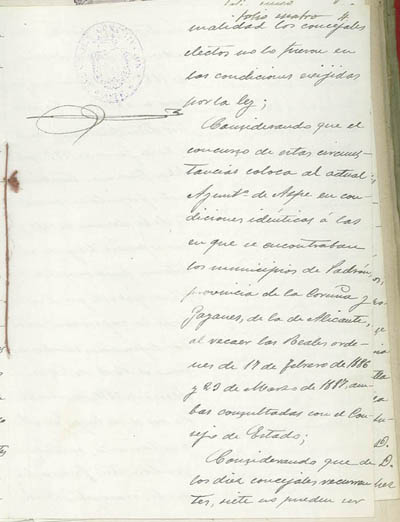 folio cuatro 4
malidad los concejales
electos no lo fueron en
las condiciones exijidas
por la ley;
Considerando que el
concurso de estas circuns-
tancias coloca al actual
Ayuntº. de Aspe en con-
diciones idénticas á las
en que se encontraban
los municipios de Padrón,
provincia de la Coruña y
Jaganes, de la de Alicante,
al recaer las Reales orde-
nes de 17 de Febrero de 1886
y 23 de Marzo de 1887, am-
bas consultadas con el Con-
sejo de Estado;
Considerando que de
los diez concejales recurren-
tes, siete no pueden ser